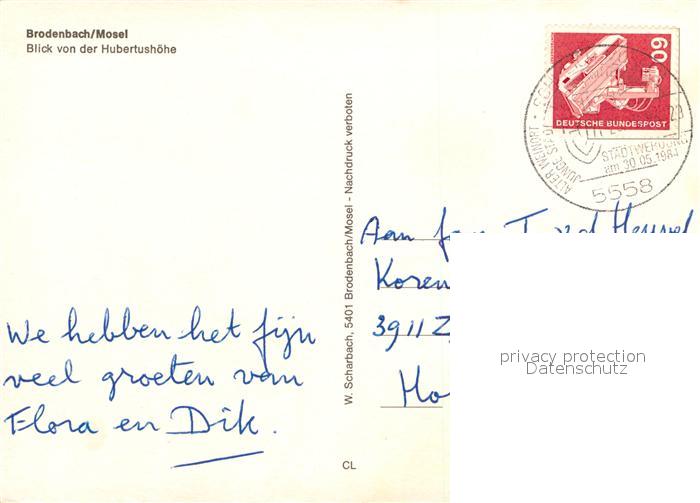 Brodenbach/Mosel
Blick von der Hubertushöhe
W. Scharbach, 5401 Brodenbach/Mosel - Nachdruck verboten
CL
60
DEUTSCHE BUNDESPOST
ALTER WEINORT
JUNGE STADT
STADTWERDUNG
am 30.05.1984
5558
Aan fam T. v d Heuvel
Koren
3911 Z
Ho
We hebben het fijn
veel groeten van
Flora en Dik.
privacy protection
Datenschutz